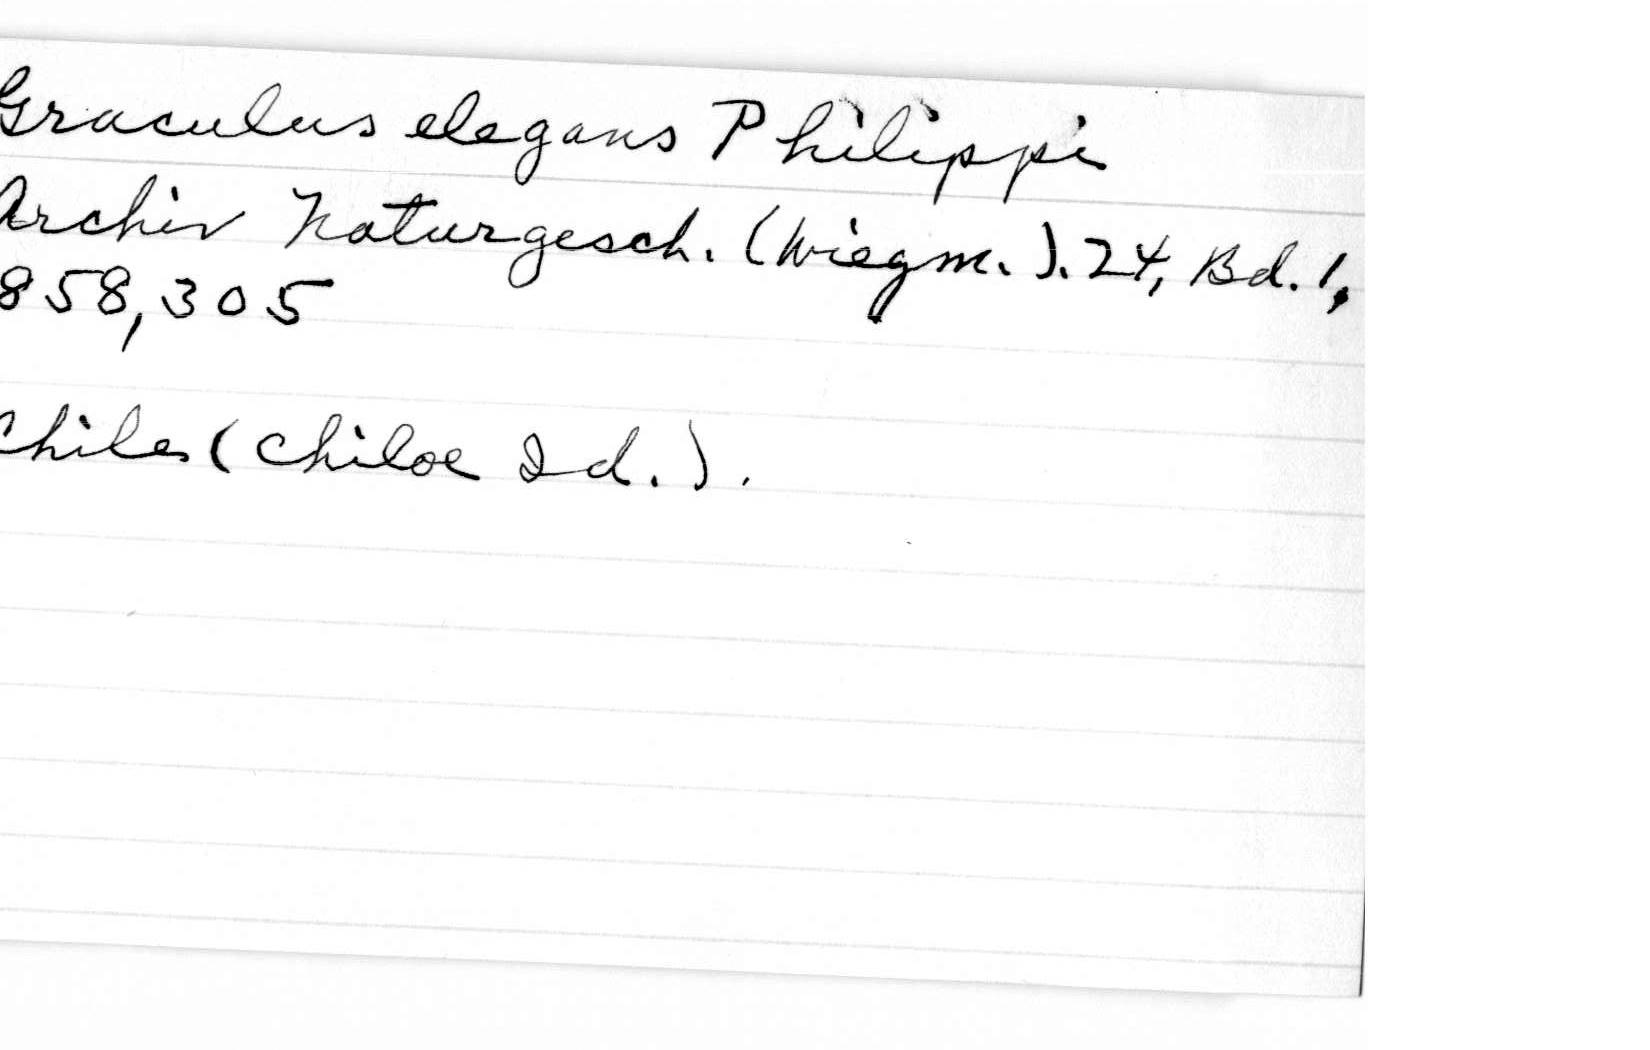 Graculus elegans Philippi
Archiv Naturgesch. (Wiegm.). 24, Bd. 1,
858, 305
Chile (Chiloe Id.).